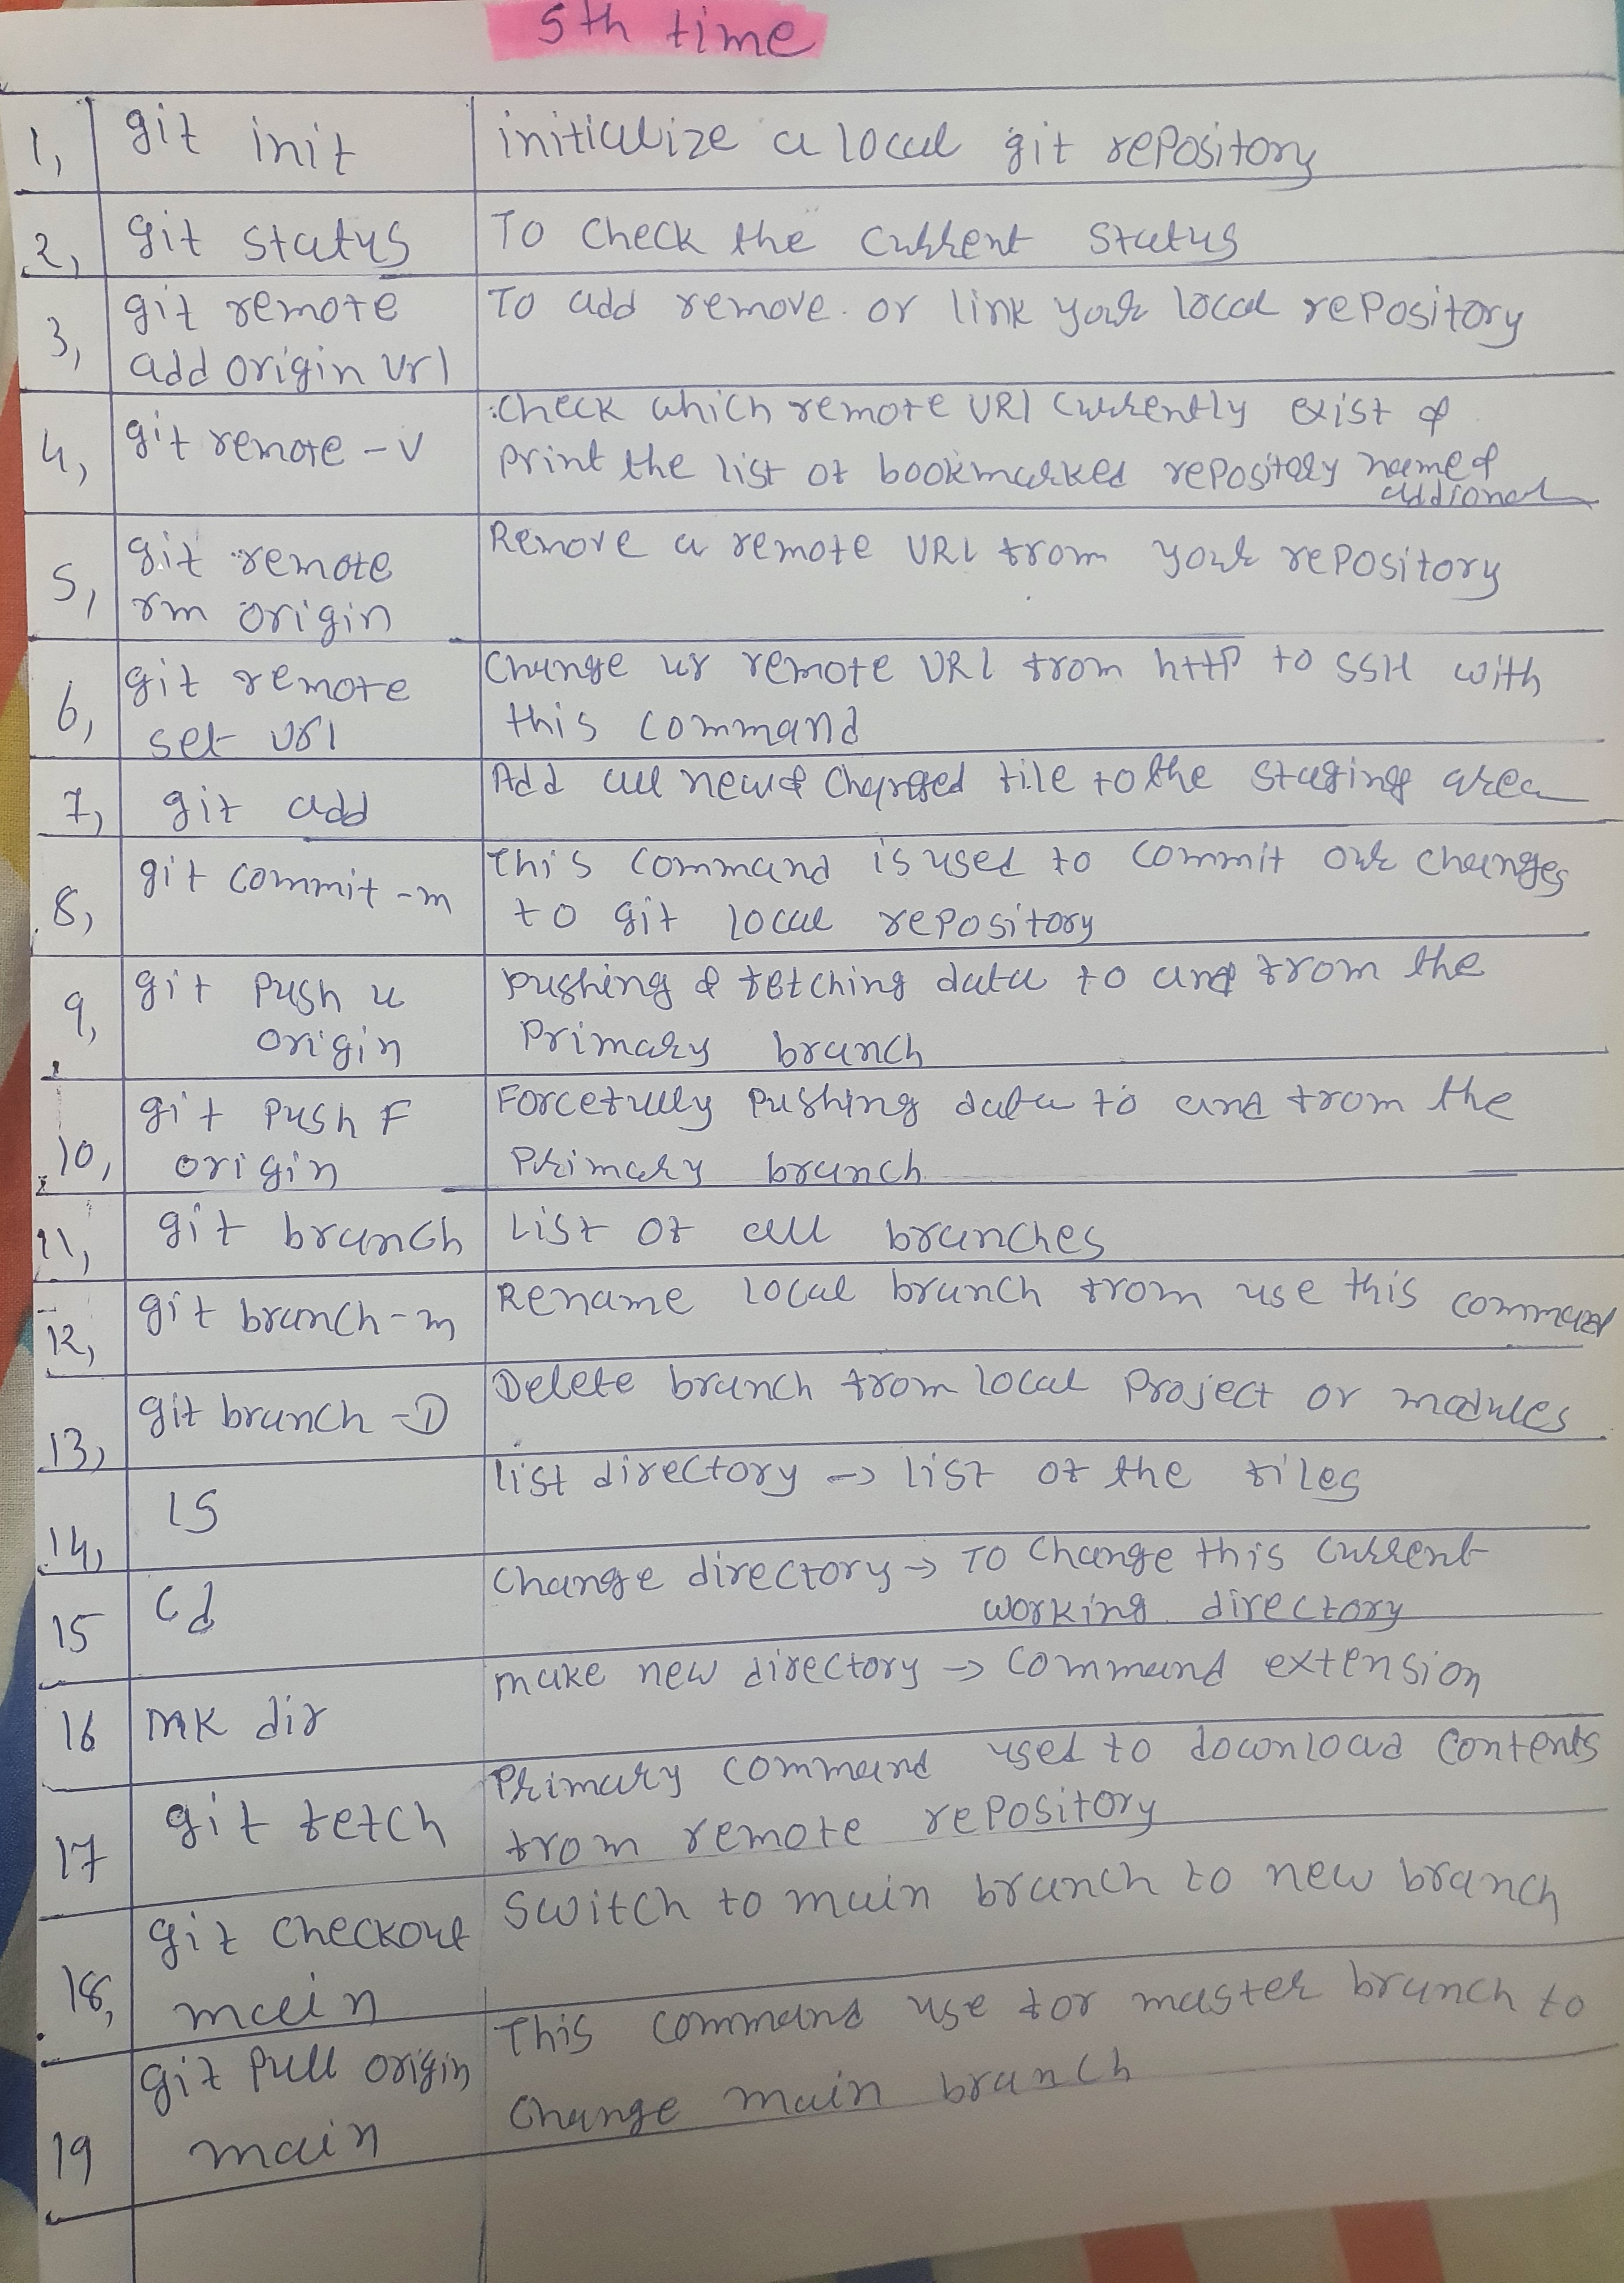 5th time
1, git init initialize a local git repository
2, git status To check the current status
3, git remote To add remove or link your local repository
add origin url
4, git remote -v check which remote URl currently exist &
print the list of bookmarked repository name &
addional
5, git remote Remove a remote URL from your repository
rm origin
6, git remote Change ur remote URl from http to SSH with
set url this command
7, git add Add all new & changed file to the staging area
8, git commit -m This command is used to commit our changes
to git local repository
9, git push u pushing & fetching data to and from the
origin primary branch
10, git push F Forcefully pushing data to and from the
origin primary branch
11, git branch List of all branches
12, git branch -m Rename local branch from use this command
13, git branch -D Delete branch from local project or modules
14, ls list directory → list of the files
15 cd change directory → To change this current
working directory
16 mk dir make new directory → command extension
17 git fetch Primary command used to download contents
from remote repository
18, git checkout switch to main branch to new branch
main
19 git pull origin This command use for master branch to
main change main branch